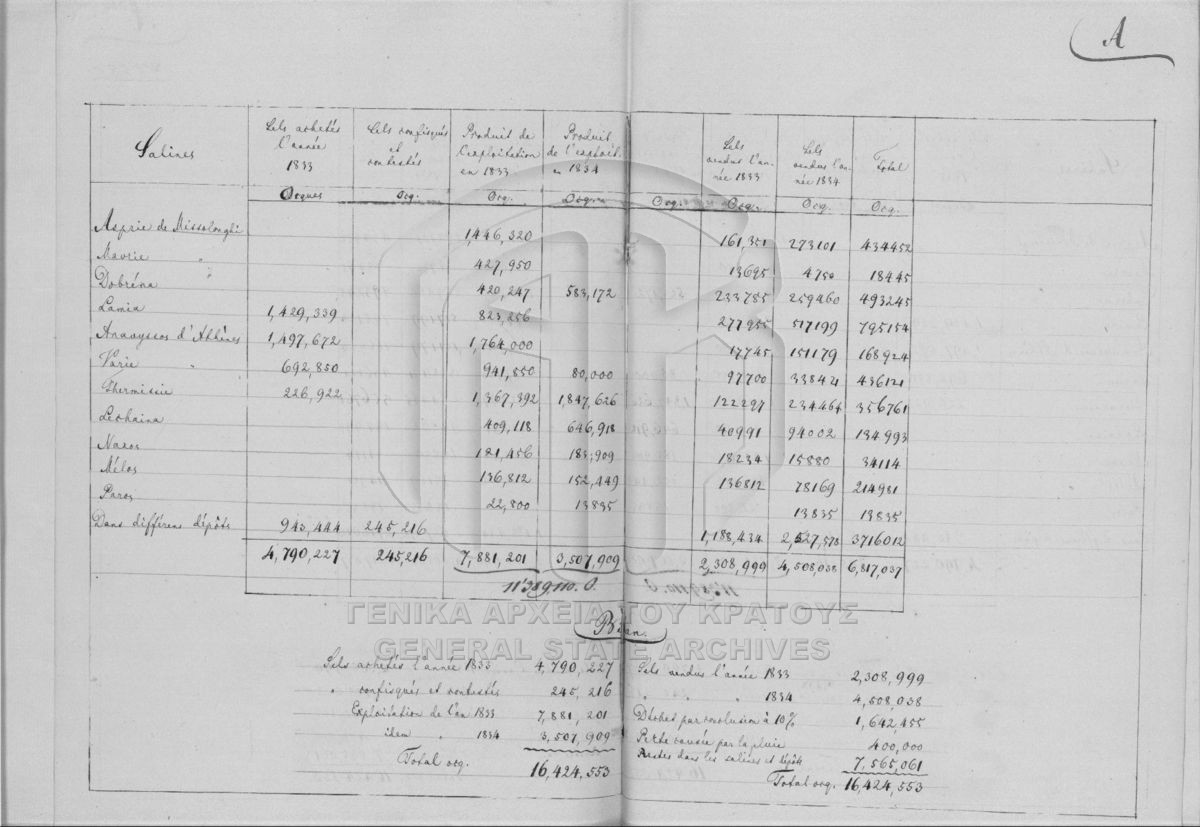 A
Salines | Sels achetés l'année 1833 | Sels confisqués et contestés | Produit de l'exploitation en 1833 | Produit de l'exploit. en 1834 | | Sels vendus l'année 1833 | Sels vendus l'année 1834 | Total
Orques | Org. | Org. | Org. | Org. | Org. | Org. | Org.
Asprie de Missolonghi | 1,446,320 | 161,351 | 273101 | 434452
Mavrie " | 427,950 | 13695 | 4750 | 18445
Dobréna | 420,247 | 583,172 | 233785 | 259460 | 493245
Lamia | 1,429,339 | 823,256 | 277955 | 517199 | 795154
Anavyssos d'Athènes | 1,497,672 | 1,764,000 | 17745 | 151179 | 168924
Varie " | 692,850 | 941,850 | 80,000 | 97700 | 338421 | 436121
Thermissie | 226,922 | 1,367,392 | 1,847,626 | 122297 | 234464 | 356761
Lechaina | 409,118 | 646,918 | 40991 | 94002 | 134993
Naxos | 121,456 | 183,909 | 18234 | 15880 | 34114
Mélos | 136,812 | 152,449 | 136812 | 78169 | 214981
Paros | 22,800 | 13835 | 13835 | 13835
Dans différens dépôts | 943,444 | 245,216 | 1,188,434 | 2,527,578 | 3716012
4,790,227 | 245,216 | 7,881,201 | 3,507,909 | 2,308,999 | 4,508,038 | 6,817,037
11'389,110. O.
ΓΕΝΙΚΑ ΑΡΧΕΙΑ ΤΟΥ ΚΡΑΤΟΥΣ
Bilan.
GENERAL STATE ARCHIVES
Sels achetés l'année 1833 4,790,227
" confisqués et contestés 245,216
Exploitation de l'an 1833 7,881,201
idem " 1834 3,507,909
Total org. 16,424,553
Sels vendus l'année 1833 2,308,999
" " " 1834 4,508,038
Déchet par 10% 1,642,455
Perte causée par la pluie 400,000
Restes dans les salines et dépôts 7,565,061
Total org. 16,424,553